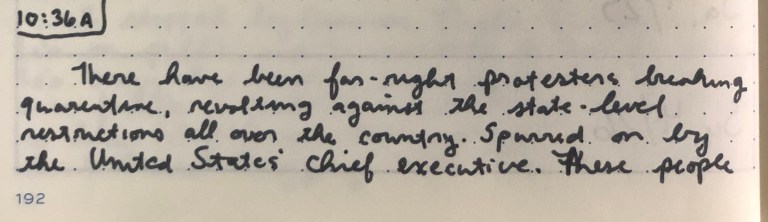 10:36A
There have been far-right protesters breaking
quarentine, revolting against the state-level
restrictions all over the country. Spurred on by
the United States' chief executive. These people
192